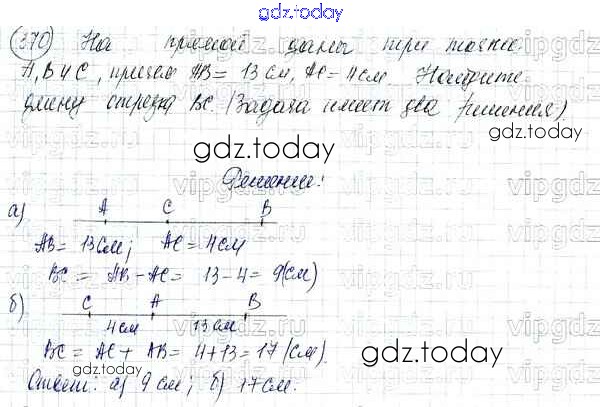 gdz.today
370 На прямой даны три точки
А, В и С, причем АВ = 13 см, АС = 4 см Найдите
длину отрезка ВС. (Задача имеет два решения).
gdz.today
gdz.today
Решение:
а) А С В
АВ = 13 см; АС = 4 см
ВС = АВ - АС = 13 - 4 = 9 (см)
б) С А В
4 см 13 см
ВС = АС + АВ = 4 + 13 = 17 (см).
gdz.today
gdz.today
Ответ: а) 9 см; б) 17 см.